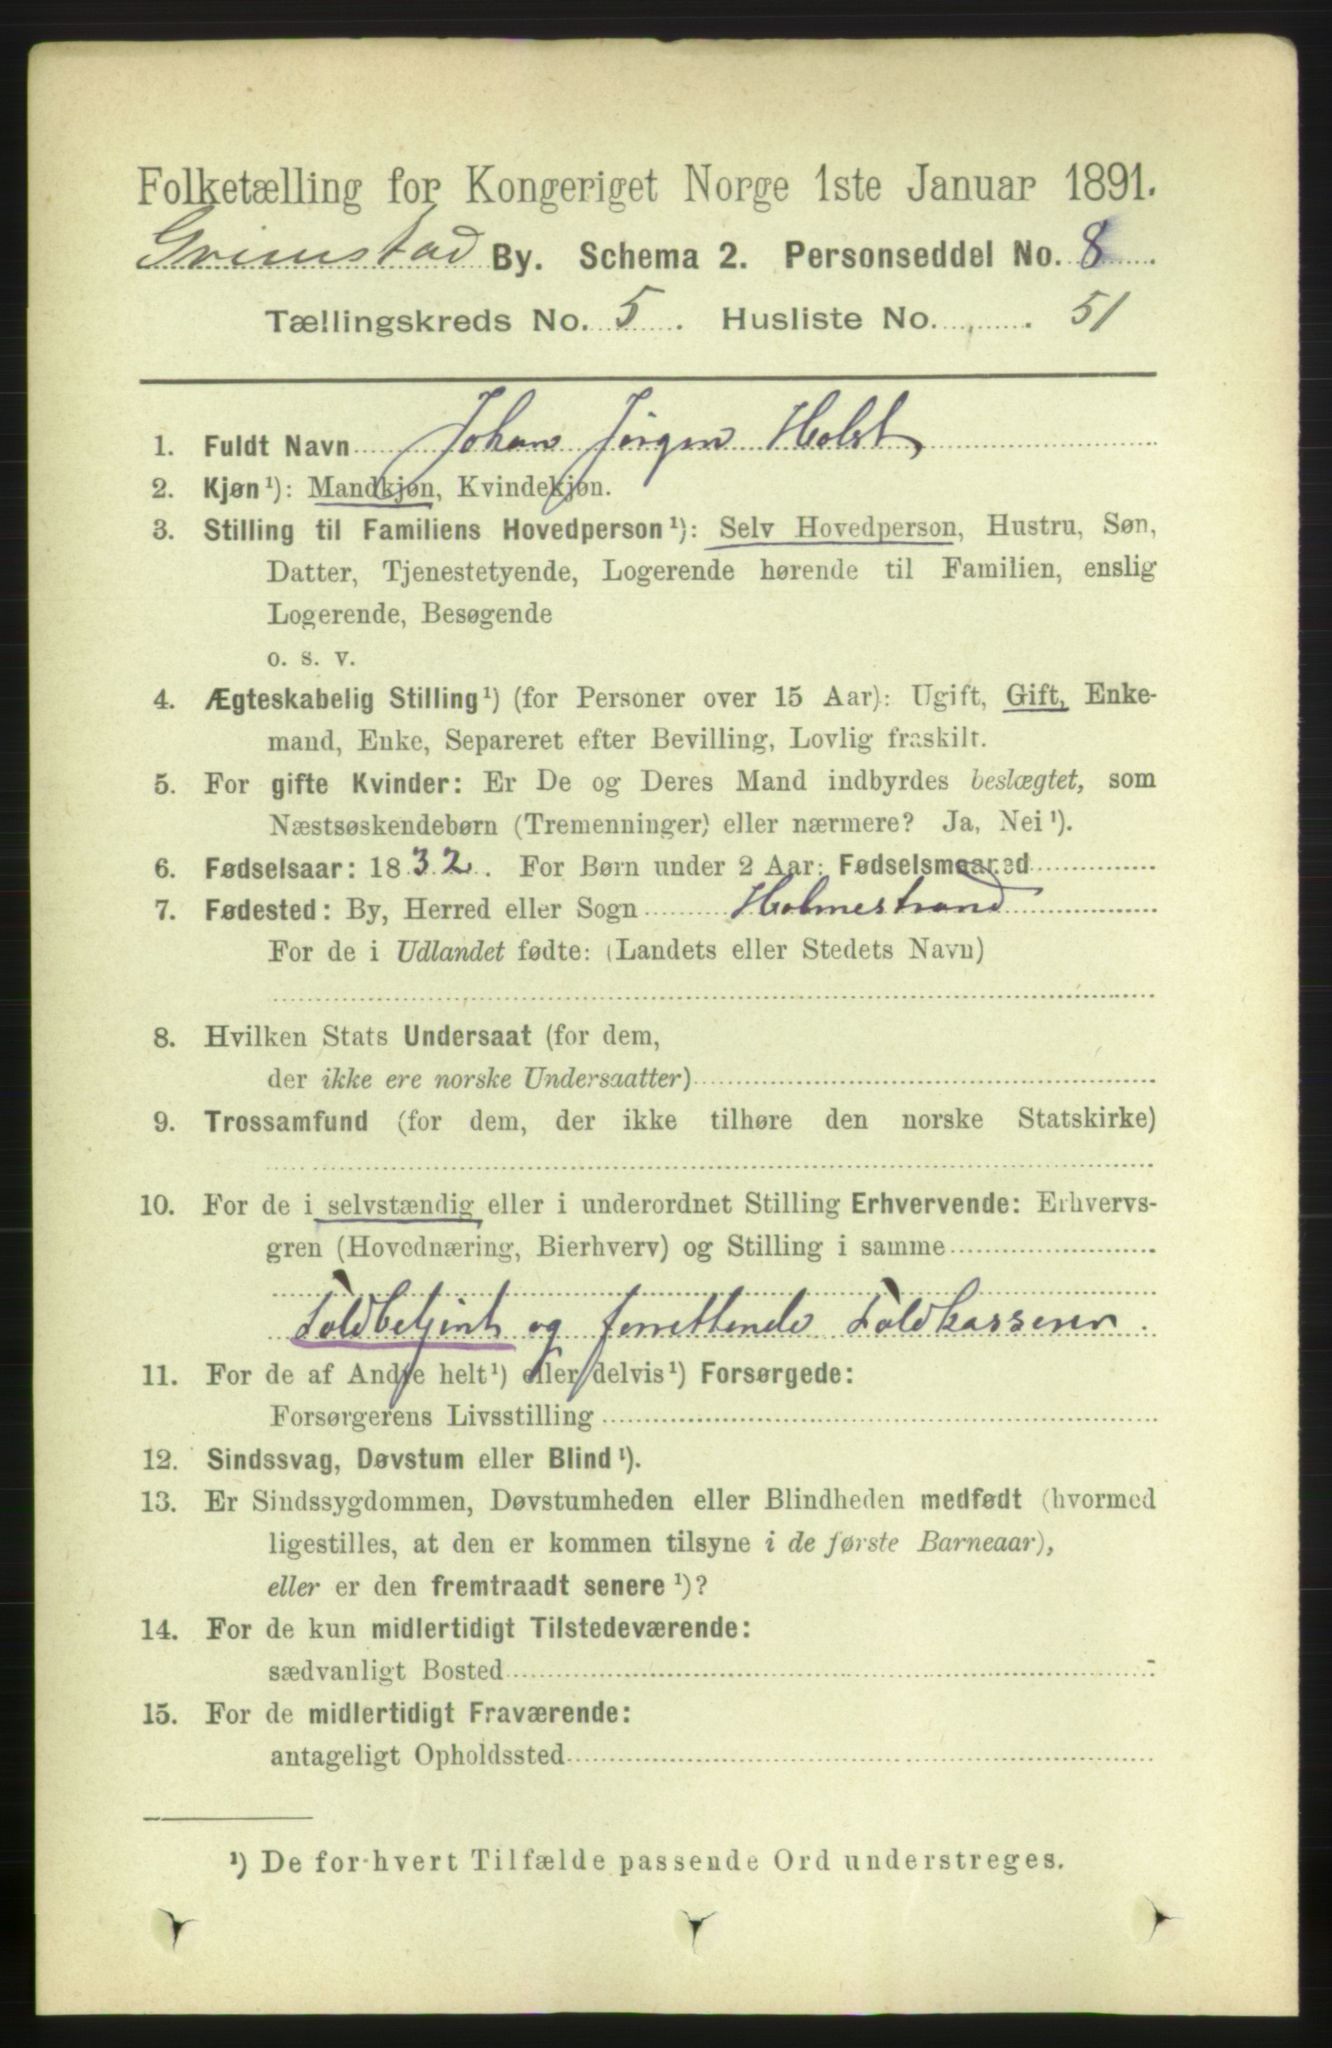 Folketælling for Kongeriget Norge 1ste Januar 1891.
Grimstad By. Schema 2. Personseddel No. 8.
Tællingskreds No. 5. Husliste No. 51
1. Fuldt Navn Johan Jørgen Holst
2. Kjøn¹): Mandkjøn, Kvindekjøn.
3. Stilling til Familiens Hovedperson¹): Selv Hovedperson, Hustru, Søn,
Datter, Tjenestetyende, Logerende hørende til Familien, enslig
Logerende, Besøgende
o. s. v.
4. Ægteskabelig Stilling¹) (for Personer over 15 Aar): Ugift, Gift, Enke-
mand, Enke, Separeret efter Bevilling, Lovlig fraskilt.
5. For gifte Kvinder: Er De og Deres Mand indbyrdes beslægtet, som
Næstsøskendebørn (Tremenninger) eller nærmere? Ja, Nei¹).
6. Fødselsaar: 1832. For Børn under 2 Aar: Fødselsmaaned
7. Fødested: By, Herred eller Sogn Holmestrand
For de i Udlandet fødte: (Landets eller Stedets Navn)
8. Hvilken Stats Undersaat (for dem,
der ikke ere norske Undersaatter)
9. Trossamfund (for dem, der ikke tilhøre den norske Statskirke)
10. For de i selvstændig eller i underordnet Stilling Erhvervende: Erhvervs-
gren (Hovednæring, Bierhverv) og Stilling i samme
Toldbetjent og forrettende Toldkasserer
11. For de af Andre helt¹) eller delvis¹) Forsørgede:
Forsørgerens Livsstilling
12. Sindssvag, Døvstum eller Blind¹).
13. Er Sindssygdommen, Døvstumheden eller Blindheden medfødt (hvormed
ligestilles, at den er kommen tilsyne i de første Barneaar),
eller er den fremtraadt senere¹)?
14. For de kun midlertidigt Tilstedeværende:
sædvanligt Bosted
15. For de midlertidigt Fraværende:
antageligt Opholdssted
¹) De for hvert Tilfælde passende Ord understreges.